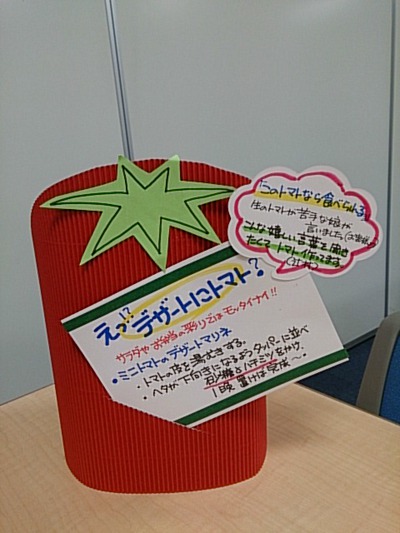 「このトマトなら食べられる」
生のトマトが苦手な娘が
言いました(お客様)
こんな嬉しい言葉を聞き
たくてトマト作ってます
えっ!?デザートにトマト?
サラダやお弁当の彩りではモッタイナイ!!
・ミニトマトのデザートマリネ
・トマトの皮を湯むきする。
・ヘタが下向きになるようタッパーに並べ
砂糖とハチミツをかけ、
1晩置けば完成〜